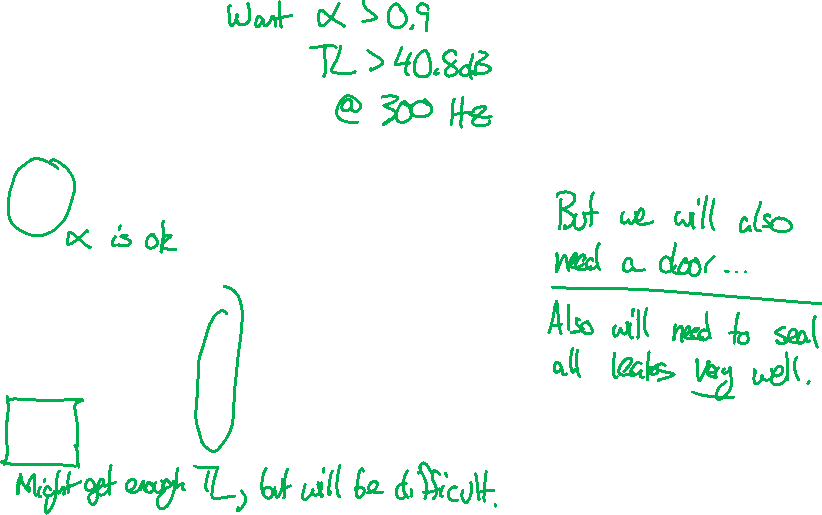 Want α > 0.9
TL > 40.8dB
@ 300 Hz
α is ok
But we will also
need a door...
Also will need to seal
all leaks very well.
Might get enough TL, but will be difficult.